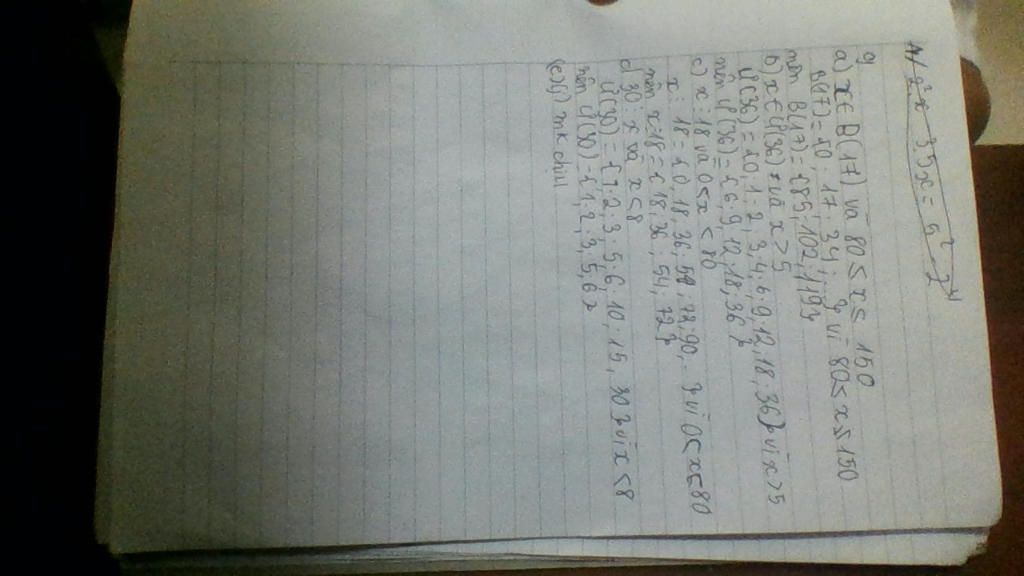 9
a) x ∈ B(17) và 80 ≤ x ≤ 150
B(17) = {0; 17; 34; ...} vì 80 ≤ x ≤ 150
nên B(17) = {85; 102; 119}
b) x ∈ Ư(36) và x > 5
Ư(36) = {0, 1, 2, 3, 4, 6, 9, 12, 18, 36} vì x > 5
nên Ư(36) = {6, 9, 12, 18, 36}
c) x : 18 và 0 < x < 80
x : 18 = {0; 18; 36; 54; 72; 90; ...} vì 0 < x < 80
nên x : 18 = {18; 36; 54; 72}
d) 30 : x và x < 8
Ư(30) = {1, 2, 3, 5, 6, 10, 15, 30} vì x < 8
nên Ư(30) = {1, 2, 3, 5, 6}
(e), (g) mk chịu